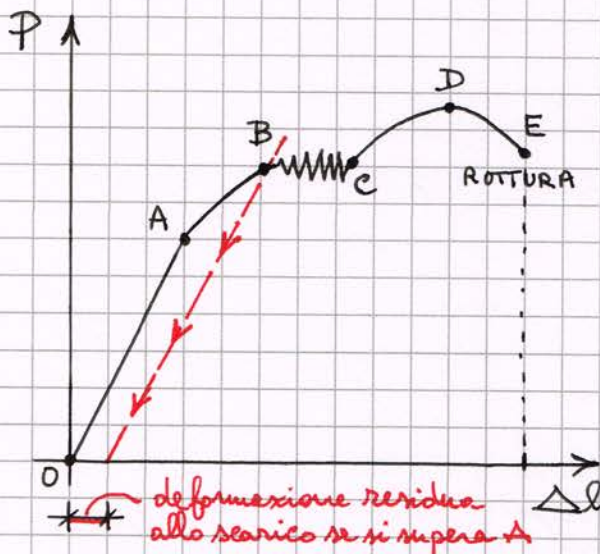 P
D
B
E
C
ROTTURA
A
O
Δl
deformazione residua
allo scarico se si supera A